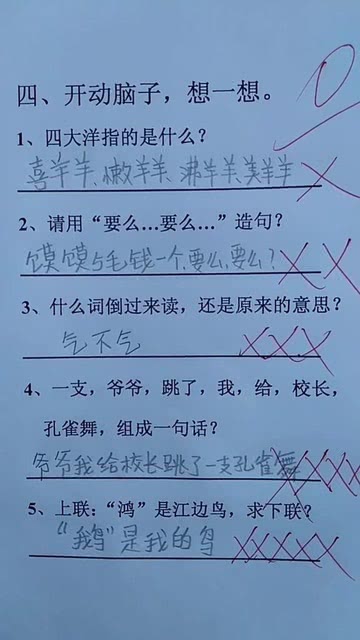 四、开动脑子，想一想。
1、四大洋指的是什么？
喜羊羊、懒羊羊、沸羊羊、美羊羊
2、请用“要么…要么…”造句？
馍馍5毛钱一个,要么,要么?
3、什么词倒过来读，还是原来的意思？
气不气
4、一支，爷爷，跳了，我，给，校长，
孔雀舞，组成一句话？
爷爷我给校长跳了一支孔雀舞
5、上联：“鸿”是江边鸟，求下联？
“鹅”是我的鸟